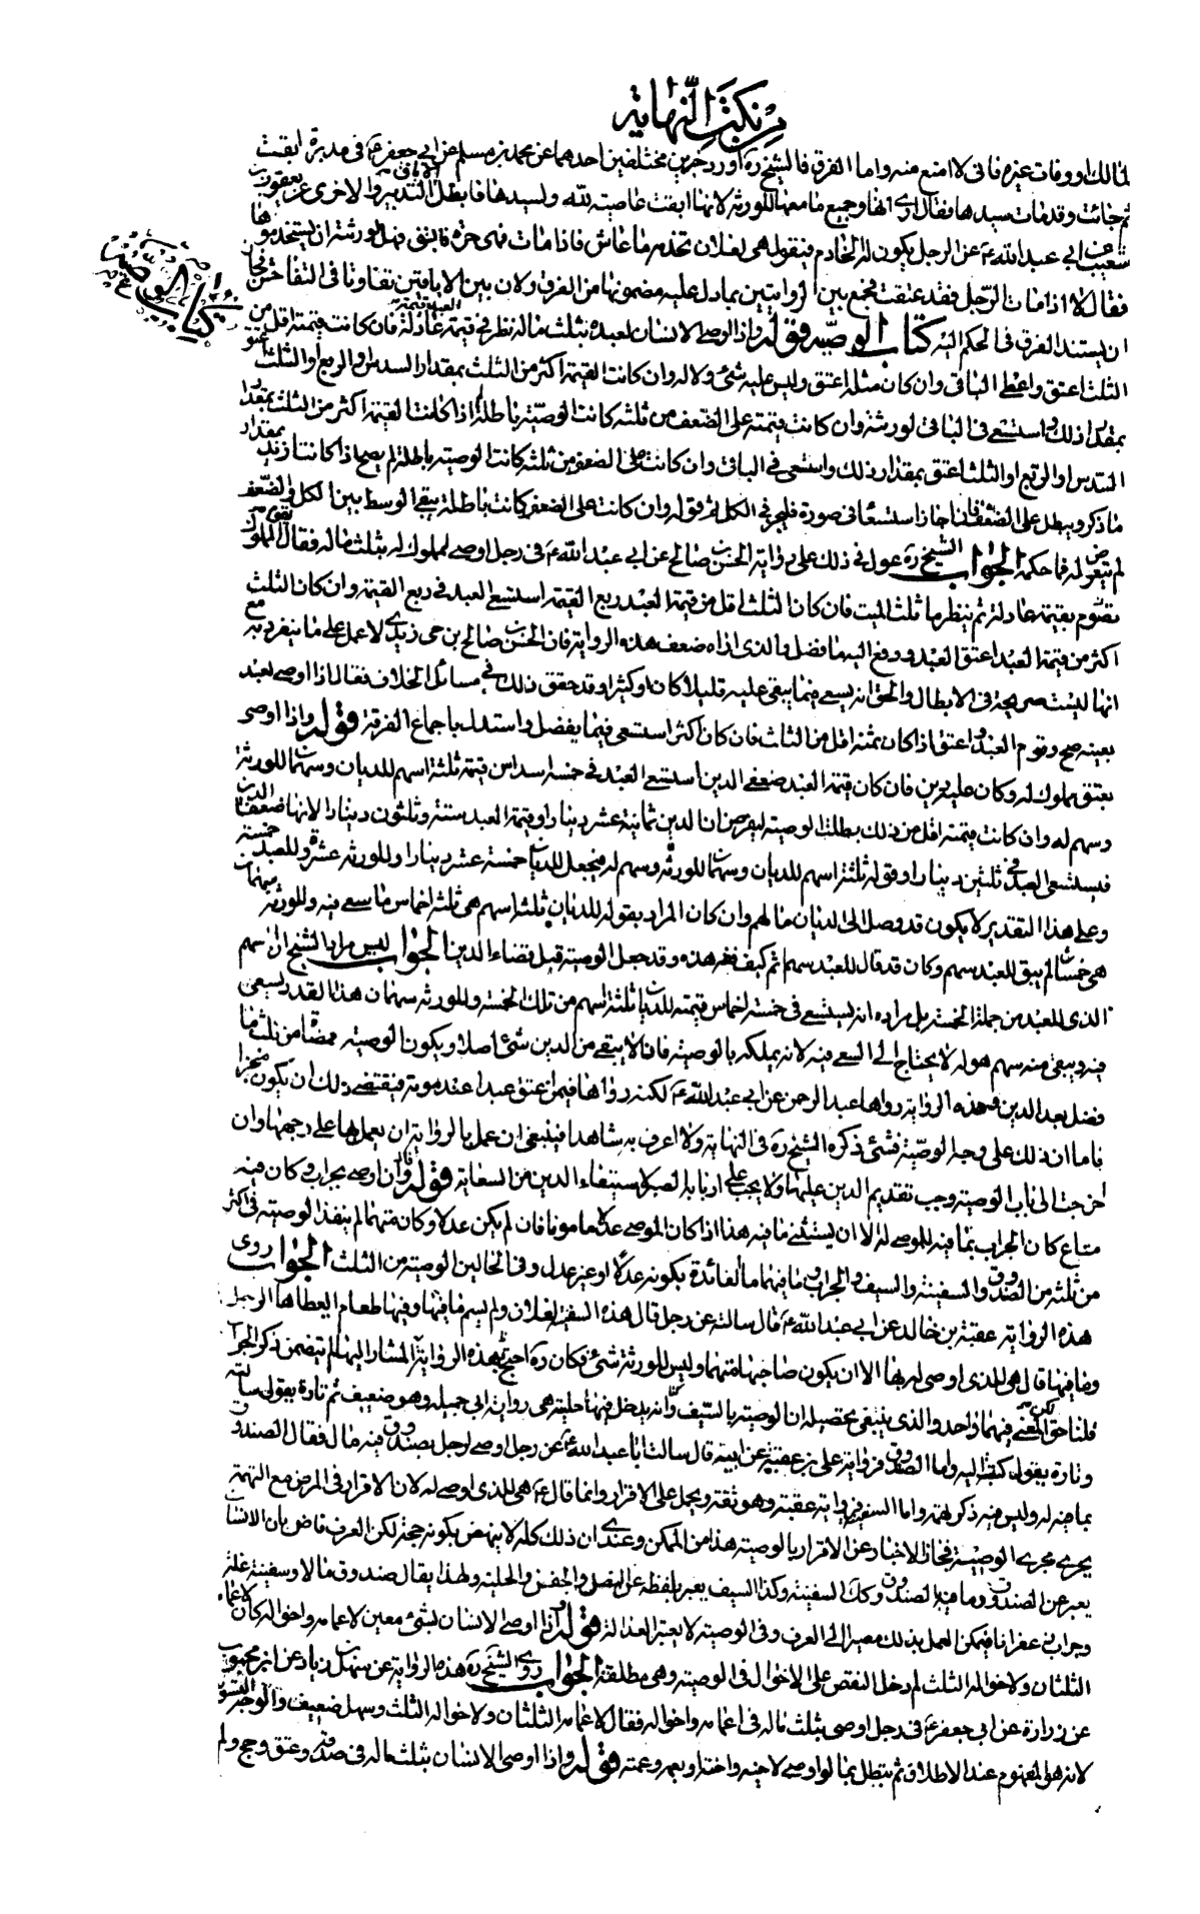 من نكت النهاية
المالك او وفات غيره فانى لا امنع منه واما الفرق فالشيخ ره اورد خبرين مختلفين احدهما عن محمد بن مسلم عن ابي جعفر ع في مدبرة ابقت
ثم جائت وقد مات سيدها فقال ارى انها وجميع ما معها للورثة لانها ابقت عاصية لله ولسيدها فابطل الاباق التدبير والاخرى عن يعقوب بن
شعيب عن ابي عبد الله ع عن الرجل يكون له الخادم فيقول هي لفلان تخدمه ما عاش فاذا مات فهى حرة فابق فهل لورثته ان يستخدموها
فقال لا اذا مات الرجل فقد عتقت فجمع بين الروايتين بما دل عليه مضمونها من الفرق ولان بين الاباقين تفاوتا في التفاحش فجاز
كتاب الوصية
ان يستند الفرق في الحكم اليه كتاب الوصيه فقوله واذا اوصى الانسان لعبده بثلث ماله نظر في قيمة العبد قيمة عادلة فان كانت قيمته اقل من
الثلث اعتق واعطى الباقى وان كان مثله اعتق وليس عليه شئ ولا له وان كانت القيمة اكثر من الثلث بمقدار السدس او الربع او الثلث اعتق
بمقدار ذلك واستسعى في الباقى لورثته وان كانت قيمته على الضعف من ثلثه كانت الوصية باطلة اذا كانت القيمة اكثر من الثلث بمقدار
السدس او الربع او الثلث اعتق بمقدار ذلك واستسعى في الباقى وان كانت على الضعف من ثلثه كانت الوصيه باطلة لم يصح اذا كانت ازيد بمقدار
ما ذكر ويبطل على الضعف فان اجاز استسعائى صورة فليجز في الكل ثم قوله وان كانت على الضعف كانت باطلة يبقى الوسط بين الكل والضعف
لم يتعرض له فما حكمه الجواب الشيخ ره عول في ذلك على رواية الحسن بن صالح عن ابي عبد الله ع في رجل اوصى لمملوك له بثلث ماله فقال يقوم المملوك
بقيمة عادلة ثم ينظر ما ثلث الميت فان كان الثلث اقل من قيمة العبد ربع القيمة استسعى العبد في ربع القيمة وان كان الثلث
اكثر من قيمة العبد اعتق العبد ودفع اليه ما فضل والذى اراه ضعف هذه الرواية فان الحسن بن صالح بن حى زيدى لا عمل على ما ينفرد به مع
انها ليست صريحة في الابطال والحق انه يسعى فيما يبقى عليه قليلا كان او كثيرا وقد حقق ذلك في مسائل الخلاف فقال اذا اوصى لعبد
بعينه صح وقوم العبد واعتق اذا كان ثمنه اقل من الثلث فان كان اكثر استسعى فيما يفضل واستدل باجماع الفرقة فقوله واذا اوصى
بعتق مملوك له وكان عليه دين فان كان قيمة العبد ضعفى الدين استسعى العبد في خمسة اسداس قيمته ثلثة اسهم للديان وسهمان للورثة
وسهم له وان كانت قيمته اقل من ذلك بطلت الوصيه ليفرض ان الدين ثمانية عشر دينارا وقيمة العبد ستة وثلثون دينارا لانها ضعف الدين
فيستسعى العبد في ثلثين دينارا وقوله ثلثة اسهم للديان وسهمان للورثه وسهم له فيجعل للديان خمسة عشر دينارا وللورثه عشرة وللعبد خمسة
وعلى هذا التقدير لا يكون قد وصل الى الديان مالهم وان كان المراد بقوله للديان ثلثة اسهم هى ثلثة اخماس ما سعى فيه وللورثه سهمان
هي خمسان لم يبق للعبد سهم وكان قد قال للعبد سهم ثم كيف فقره هذه وقد جعل الوصية قبل قضاء الدين الجواب ليس مراد الشيخ ان السهم
الذى للعبد من جملة الخمسة بل مراده انه يستسعى في خمسة اخماس قيمته للديان ثلثة اسهم من تلك الخمسة وللورثه سهمان هذا القدر يسعى
فيه ويبقى منه سهم هو له لا يحتاج الى السعى فيه لانه يملكه بالوصيه فانه لا يبقى من الدين شئ اصلا ويكون الوصيه ممضاة من ثلث ما
فضل بعد الدين وهذه الرواية رواها عبد الرحمن عن ابي عبد الله ع لكنه رواها فيمن عتق عبدا عند موته فيقتضى ذلك ان يكون منجزا
فاما ان ذلك على وجه الوصية فشئ ذكره الشيخ ره في النهاية ولا اعرف به شاهدا فينبغى ان عمل بالرواية ان يعملها على وجهها وان
اخرجت الى باب الوصيه وجب تقديم الدين عليها ولا يجب على اربابه الصبر لاستيفاء الدين من السعاية فقوله وان اوصى بجراب وكان فيه
متاع كان الجراب بما فيه للموصى له الا ان يستثنى ما فيه هذا اذا كان الموصى عدلا مامونا فان لم يكن عدلا وكان متهما لم ينفذ الوصيه في اكثر
من ثلثه من الصندوق والسفينة والسيف والجراب وما فيها ما الفائدة بكونه عدلا او غير عدل وفي الحالين الوصيه من الثلث الجواب روى
هذه الرواية عقبة بن خالد عن ابي عبد الله ع قال سالته عن رجل قال هذه السفينة لفلان ولم يسم ما فيها وفيها طعام ايعطاها الرجل
وما فيها قال هى للذى اوصى له بها الا ان يكون صاحبها متهما وليس للورثة شئ فكان ره احتج بهذه الرواية المشار اليها لم يتضمن ذكر الجراب
قلنا حق لكن المعنى فيهما واحد والذى ينبغى تحصيله ان الوصيه بالسيف وانه يدخل فيها حليته هى رواية ابي جميلة وهو ضعيف ثم تارة يقول سالته
وتارة يقول كتبت اليه واما الصندوق فرواية على بن عقبة عن ابيه قال سالت ابا عبد الله ع عن رجل اوصى لرجل بصندوق فيه مال فقال الصندوق
بما فيه له وليس فيه ذكر تهمة واما السفينة فرواية عقبة وهو ثقة ويحمل على الاقرار وانما قال ع هى للذى اوصى له لان الاقرار في المرض مع التهمة
يجرى مجرى الوصية فجاز الاخبار عن الاقرار بالوصيه هذا من الممكن وعندى ان ذلك كله لا ينهض بكونه حجة لكن العرف قاض بان الانسان
يعبر عن الصندوق وما فيه بالصندوق وكك السفينة وكذا السيف يعبر بلفظه عن النصل والجفن والحليه ولهذا يقال صندوق مالا وسفينة غلة
وجراب زعفرانا فيمكن العمل بذلك مصيرا الى العرف وفي الوصيه لا يعتبر العدالة فقوله واذا اوصى الانسان بشئ معين لاعمامه واخواله كان لاعمامه
الثلثان ولاخواله الثلث لم دخل النقص على الاخوال في الوصيه وهى مطلقة الجواب روى الشيخ ره هذه الرواية عن سهل بن زياد عن ابن محبوب
عن زرارة عن ابى جعفر ع في رجل اوصى بثلث ماله في اعمامه واخواله فقال لاعمامه الثلثان ولاخواله الثلث وسهل ضعيف والوجه التسوية
لانه هو المفهوم عند الاطلاق ثم يبطل بما لو اوصى لاخيه واخته او بعمه وعمته فقوله واذا اوصى الانسان بثلث ماله في صدقه وعتق وحج ولم